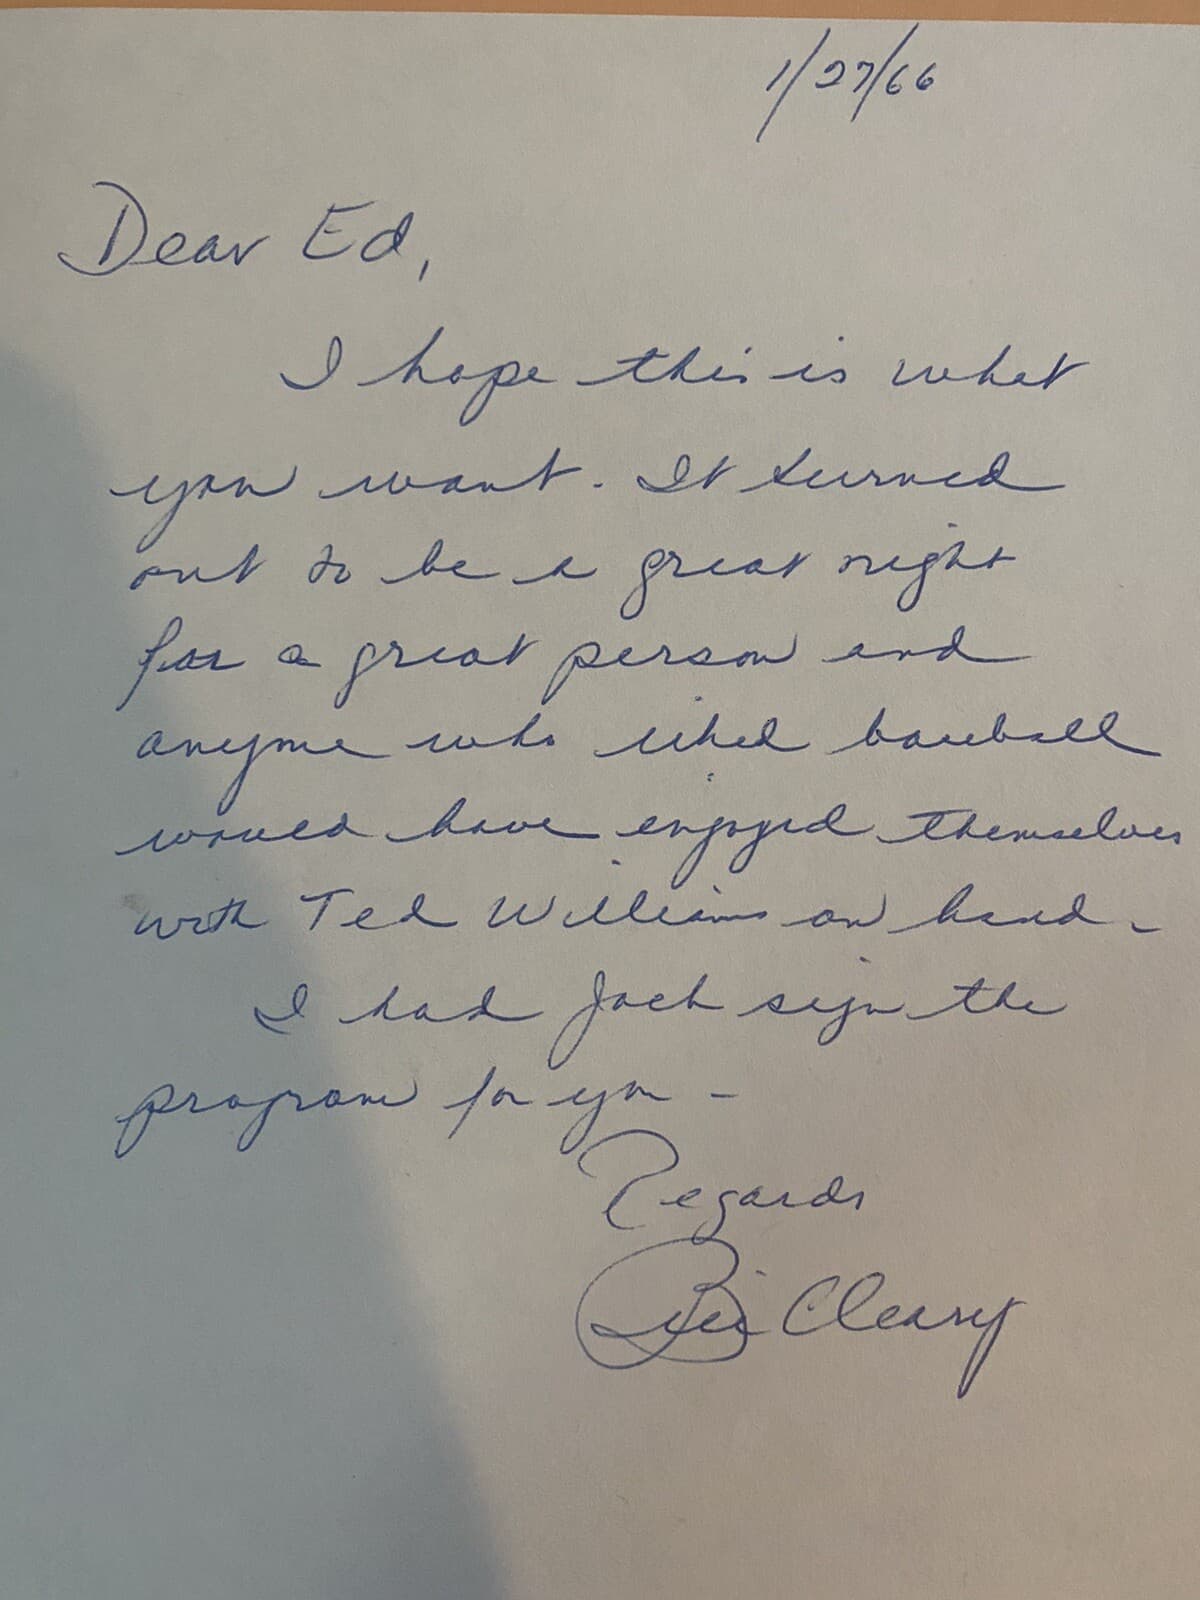 1/27/66
Dear Ed,
I hope this is what
you want. It turned
out to be a great night
for a great person and
anyone who liked baseball
would have enjoyed themselves
with Ted Williams on hand.
I had Jack sign the
program for you -
Regards
Bill Cleary